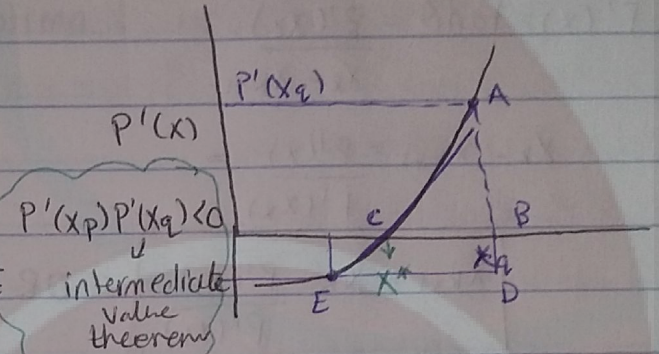 P'(xq)
A
P'(x)
P'(xp)P'(xq)<0
C
B
↓
↓
xq
intermediate
E
x*
D
value
theorem